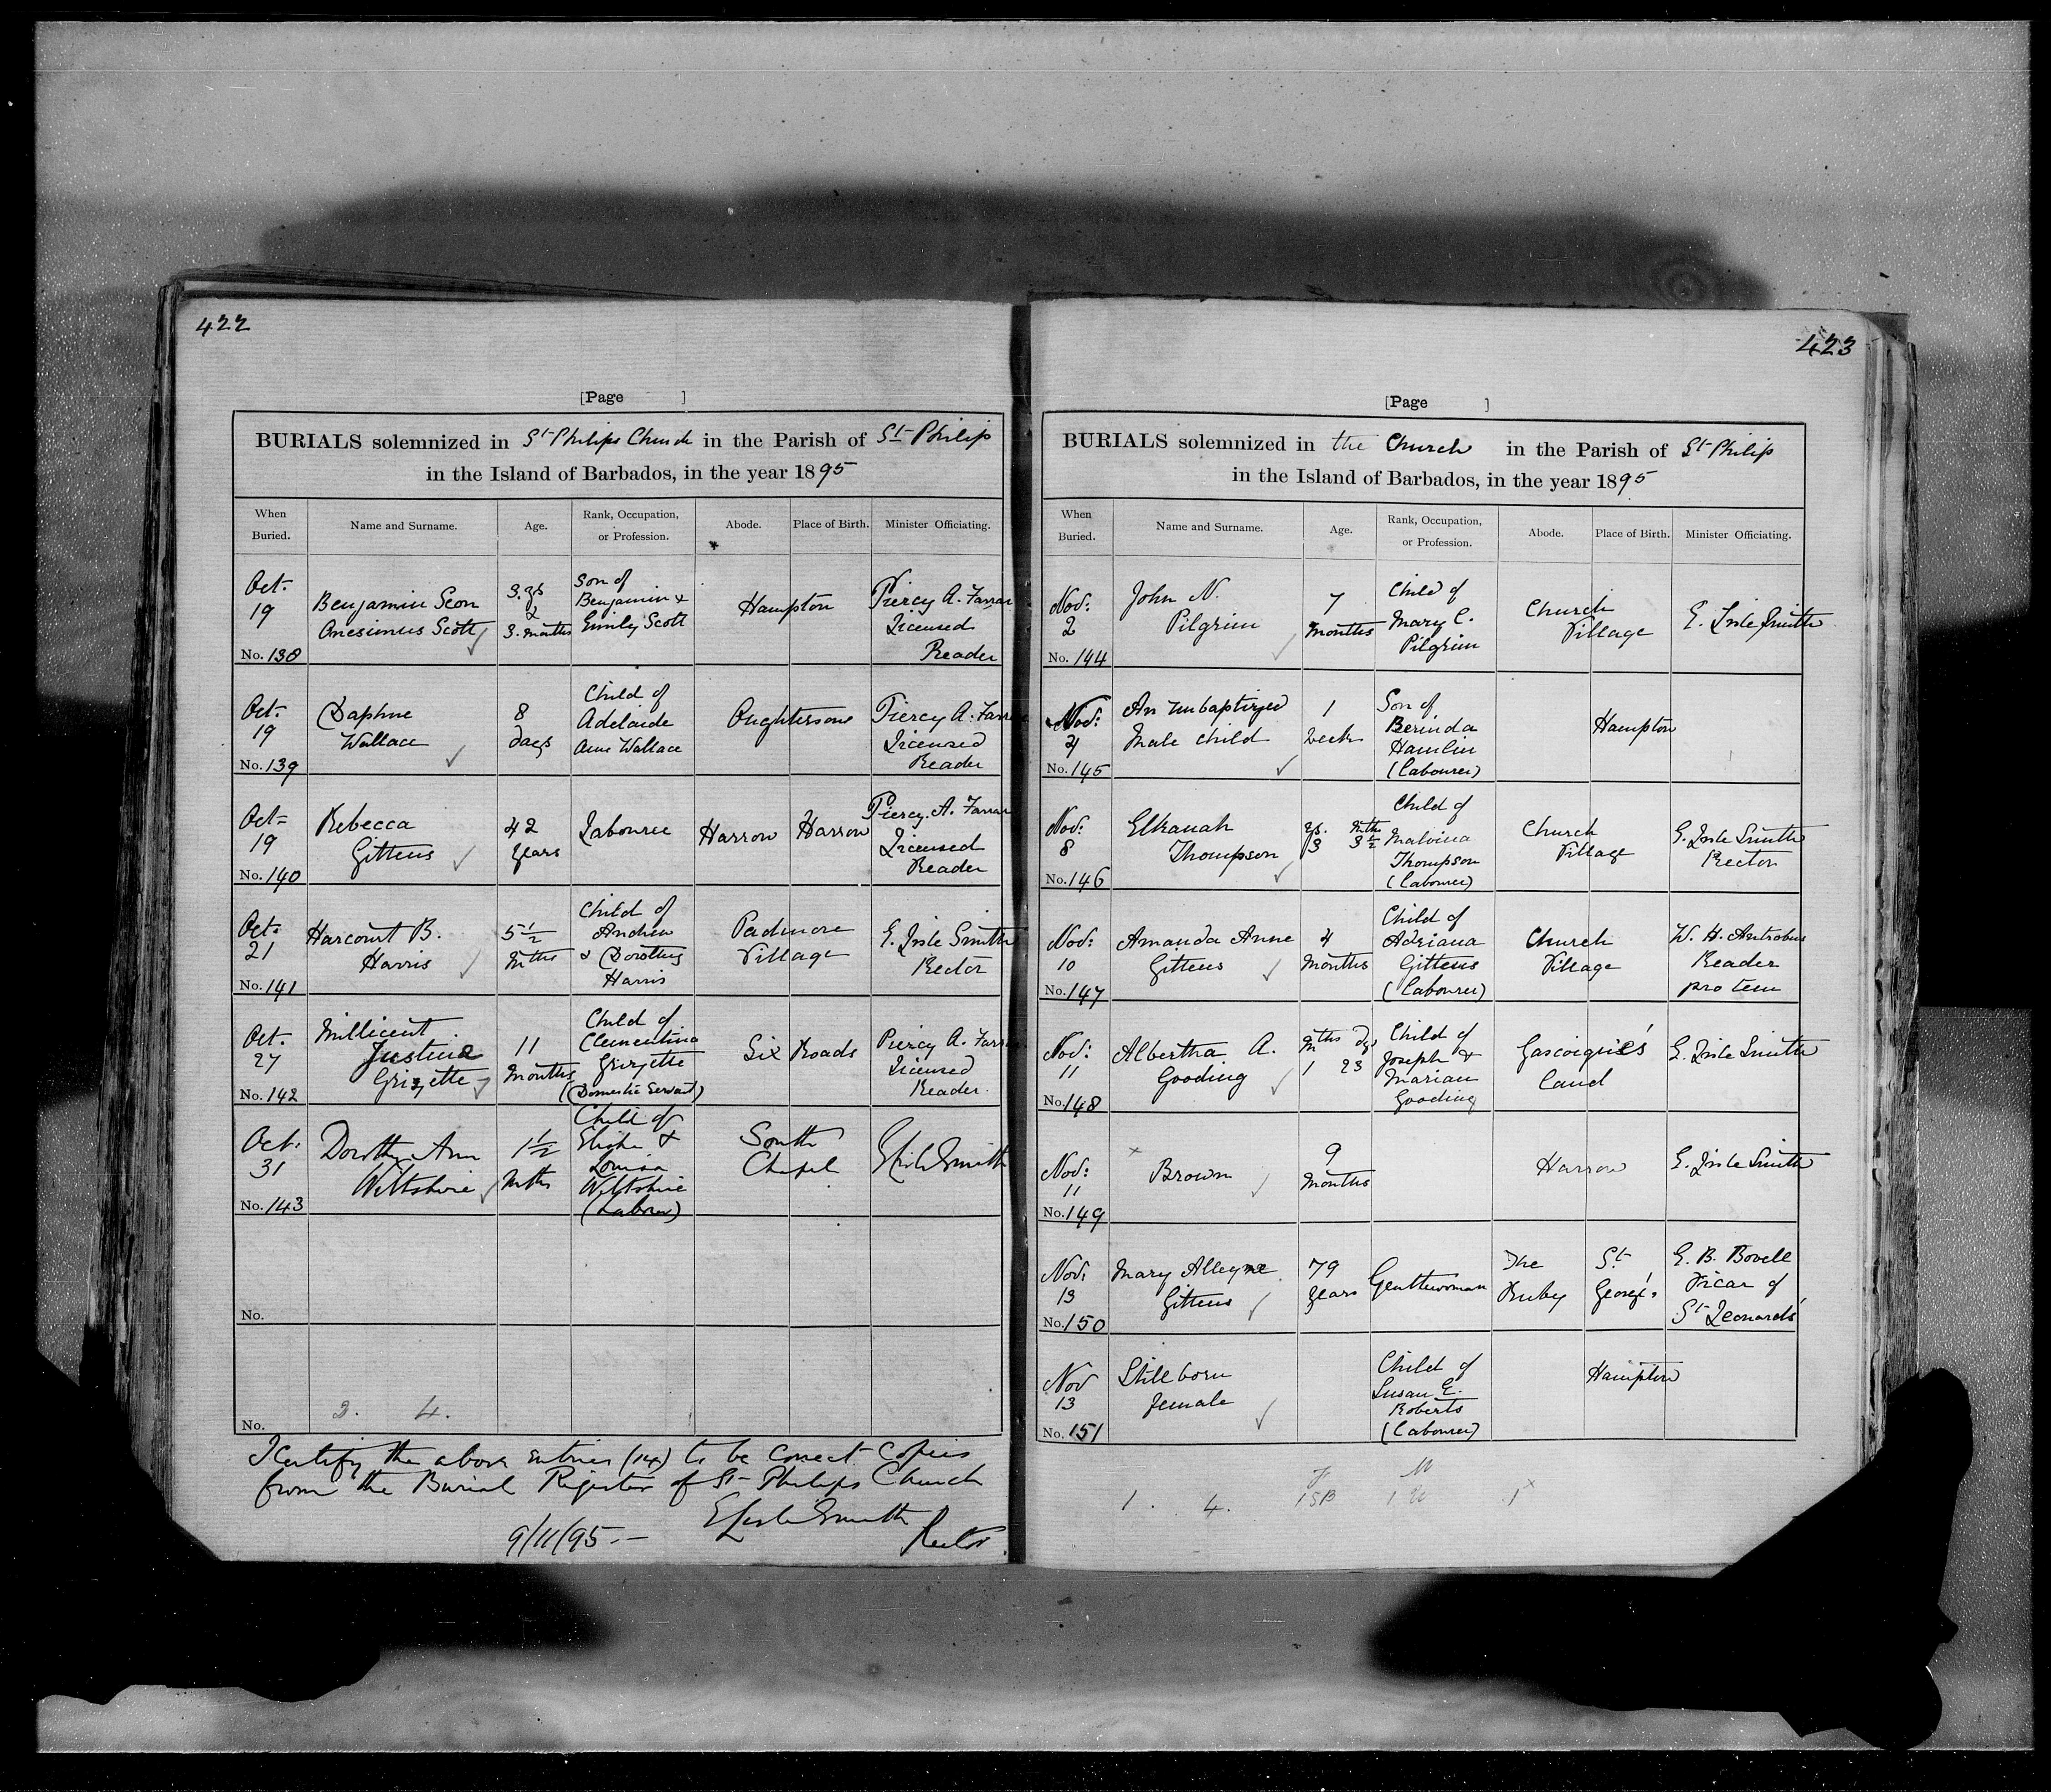 422
[Page ]
BURIALS solemnized in St Philips Church in the Parish of St Philip
in the Island of Barbados, in the year 1895
When Buried. Name and Surname. Age. Rank, Occupation, or Profession. Abode. Place of Birth. Minister Officiating.
Oct. 19 No. 138
Benjamin Seon
Onesimus Scott
3. ys
&
3. months
Son of
Benjamin &
Emily Scott
Hampton
Piercy A. Farrar
Licensed
Reader
Oct. 19 No. 139
Daphne
Wallace
8
days
Child of
Adelaide
Anne Wallace
Oughtersons
Piercy A. Farrar
Licensed
Reader
Oct 19 No. 140
Rebecca
Gittens
42
years
Labourer
Harrow
Harrow
Piercy. A. Farrar
Licensed
Reader
Oct. 21 No. 141
Harcourt B.
Harris
5 1/2
mths
Child of
Andrew
& Dorothy
Harris
Padmore
Village
E. Lisle Smith
Rector
Oct. 27 No. 142
Millicent
Justina
Grizette
11
months
Child of
Clementina
Grizette
(Domestic Servant)
Six Roads
Piercy A. Farrar
Licensed
Reader.
Oct. 31 No. 143
Dorothy Ann
Wiltshire
1 1/2
mths
Child of
Elisha &
Louisa
Wiltshire
(Labourer)
South
Chapel
E Lisle Smith
No.
No.
3. 4.
I certify the above entries (14) to be correct copies
from the Burial Register of St Philips Church
E Lisle Smith
9/11/95.— Rector
423
[Page ]
BURIALS solemnized in the Church in the Parish of St Philip
in the Island of Barbados, in the year 1895
When Buried. Name and Surname. Age. Rank, Occupation, or Profession. Abode. Place of Birth. Minister Officiating.
Nov: 2 No. 144
John N.
Pilgrim
7
months
Child of
Mary C.
Pilgrim
Church
Village
E. Lisle Smith
Nov: 4 No. 145
An unbaptized
Male child
1
week
Son of
Berinda
Hamlin
(Labourer)
Hampton
Nov: 8 No. 146
Elkanah
Thompson
ys. mths
3 3 1/2
Child of
Malvina
Thompson
(Labourer)
Church
Village
E. Lisle Smith
Rector
Nov: 10 No. 147
Amanda Anne
Gittens
4
months
Child of
Adriana
Gittens
(Labourer)
Church
Village
W. H. Antrobus
Reader
pro tem
Nov: 11 No. 148
Albertha A.
Gooding
mths dys
1 23
Child of
Joseph &
Marian
Gooding
Gascoigne's
Land
E. Lisle Smith
Nov: 11 No. 149
×
Brown
9
months
Harrow
E. Lisle Smith
Nov. 13 No. 150
Mary Alleyne
Gittens
79
years
Gentlewoman
The
Ruby
St
George's
E. B. Bovell
Vicar of
St Leonards'
Nov 13 No. 151
Stillborn
female
Child of
Susan E.
Roberts
(Labourer)
Hampton
1. 4.